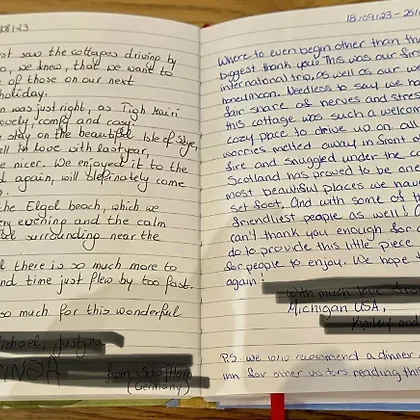 08/23
st saw the cottages driving by
o, we knew, that we want to
e of those on our next
holiday.
n was just right, as Tigh Mairi
ovely, comfy and cosy
stay on the beautiful Isle of Skye,
ell in love with last year,
e nicer. We enjoyed it to the
d again, will definately come
the Elgol beach, which we
ry evening and the calm
surrounding near the
l there is so much more to
nd time just flew by too fast.
so much for this wonderful
(Germany)
18/09/23 - 25/
Where to even begin other than th
biggest thank you! This was our firs
international trip, as well as our w
honeymoon. Needless to say we ha
fair share of nerves and stres
this cottage was such a welcom
cozy place to drive up on, all
worries melted away in front o
fire and snuggled under the c
Scotland has proved to be one
most beautiful places we hav
set foot, And with some of th
friendliest people as well!
can't thank you enough for a
do to provide this little piece
for people to enjoy. We hope t
again!
With much love
Michigan USA,
PS. we who recommend a dinner
inn for other visitors reading this